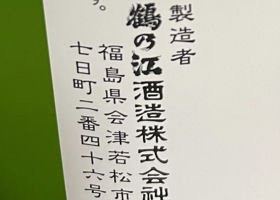 製造者
鶴の江酒造株式会社
福島県会津若松市
七日町二番四十六号
す。